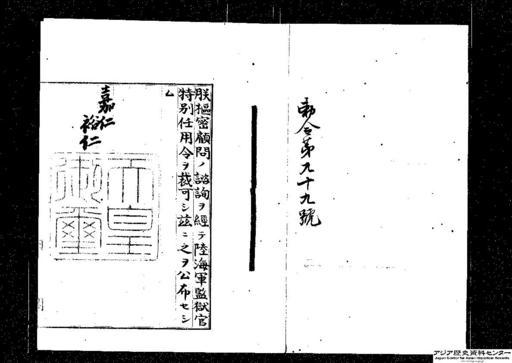 勅令第九十九號
朕樞密顧問ノ諮詢ヲ經テ陸海軍監獄官
特別任用令ヲ裁可シ茲ニ之ヲ公布セシ
ム
嘉仁
裕仁
天皇
御璽
アジア歴史資料センター
Japan Center for Asian Historical Records